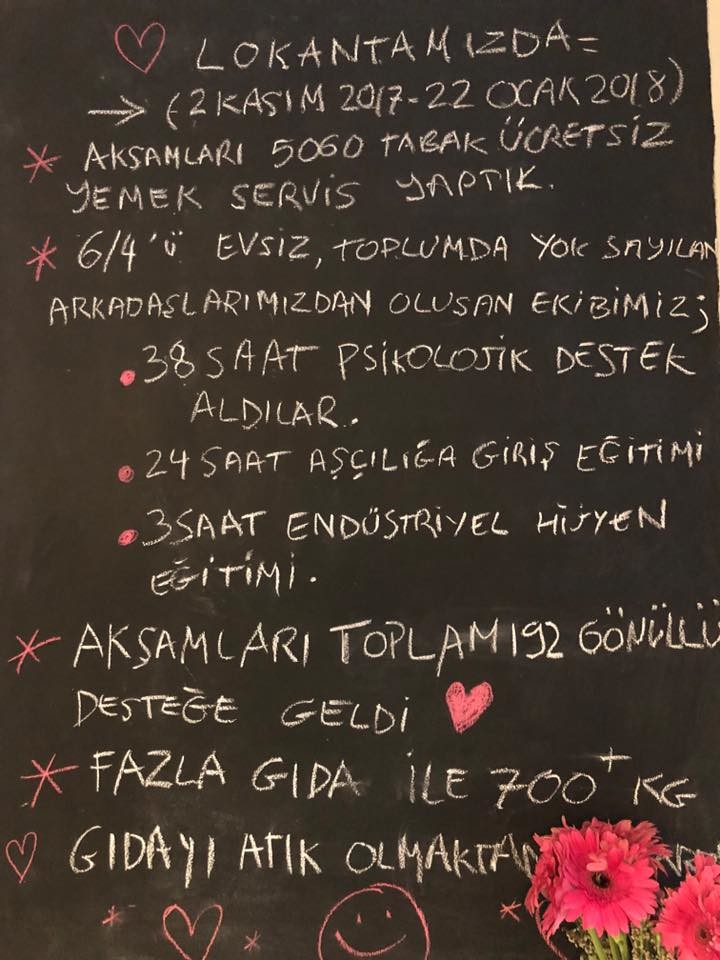 LOKANTAMIZDA=
→ (2 KASIM 2017-22 OCAK 2018)
* AKŞAMLARI 5060 TABAK ÜCRETSİZ
YEMEK SERVİS YAPTIK.
* 6/4'ü EVSİZ, TOPLUMDA YOK SAYILAN
ARKADAŞLARIMIZDAN OLUSAN EKİBİMİZ;
• 38 SAAT PSİKOLOJİK DESTEK
ALDILAR.
• 24 SAAT AŞÇILIĞA GİRİŞ EĞİTİMİ
• 3 SAAT ENDÜSTRİYEL HİJYEN
EĞİTİMİ.
* AKŞAMLARI TOPLAM 192 GÖNÜLLÜ
DESTEĞE GELDİ
* FAZLA GIDA İLE 700+ KG
GIDAYI ATIK OLMAKTAN